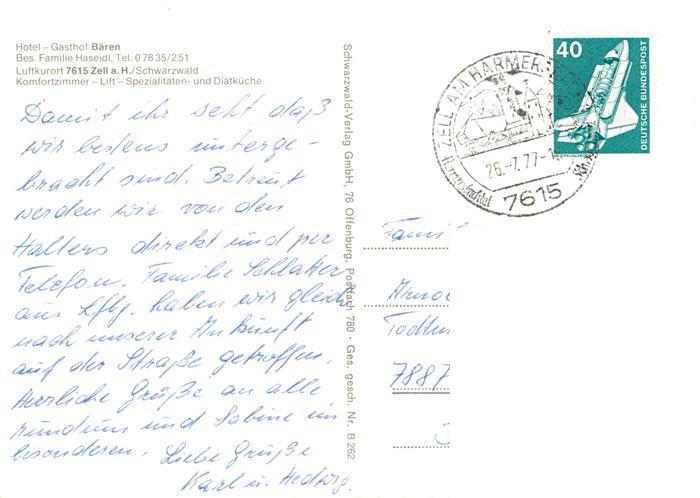 Hotel – Gasthof Bären
Bes. Familie Haseidl, Tel. 07835/251
Luftkurort 7615 Zell a. H./Schwarzwald
Komfortzimmer – Lift – Spezialitäten- und Diätküche
Damit ihr seht daß
wir bestens unterge-
bracht sind. Betreut
werden wir von den
Halters direkt und per
Telefon. Familie Schlatter
aus Lfbg. haben wir gleich
nach unserer Ankunft
auf der Straße getroffen.
Herzliche Grüße an alle
rundum und Sabine im
besonderen. Liebe Grüße
Karl u. Hedwig.
Schwarzwald-Verlag GmbH, 76 Offenburg, Postfach 780 · Ges. gesch. Nr. B 262
ZELL AM HARMERS
26.-7.77-1
7615
40
DEUTSCHE BUNDESPOST
Fami
7887